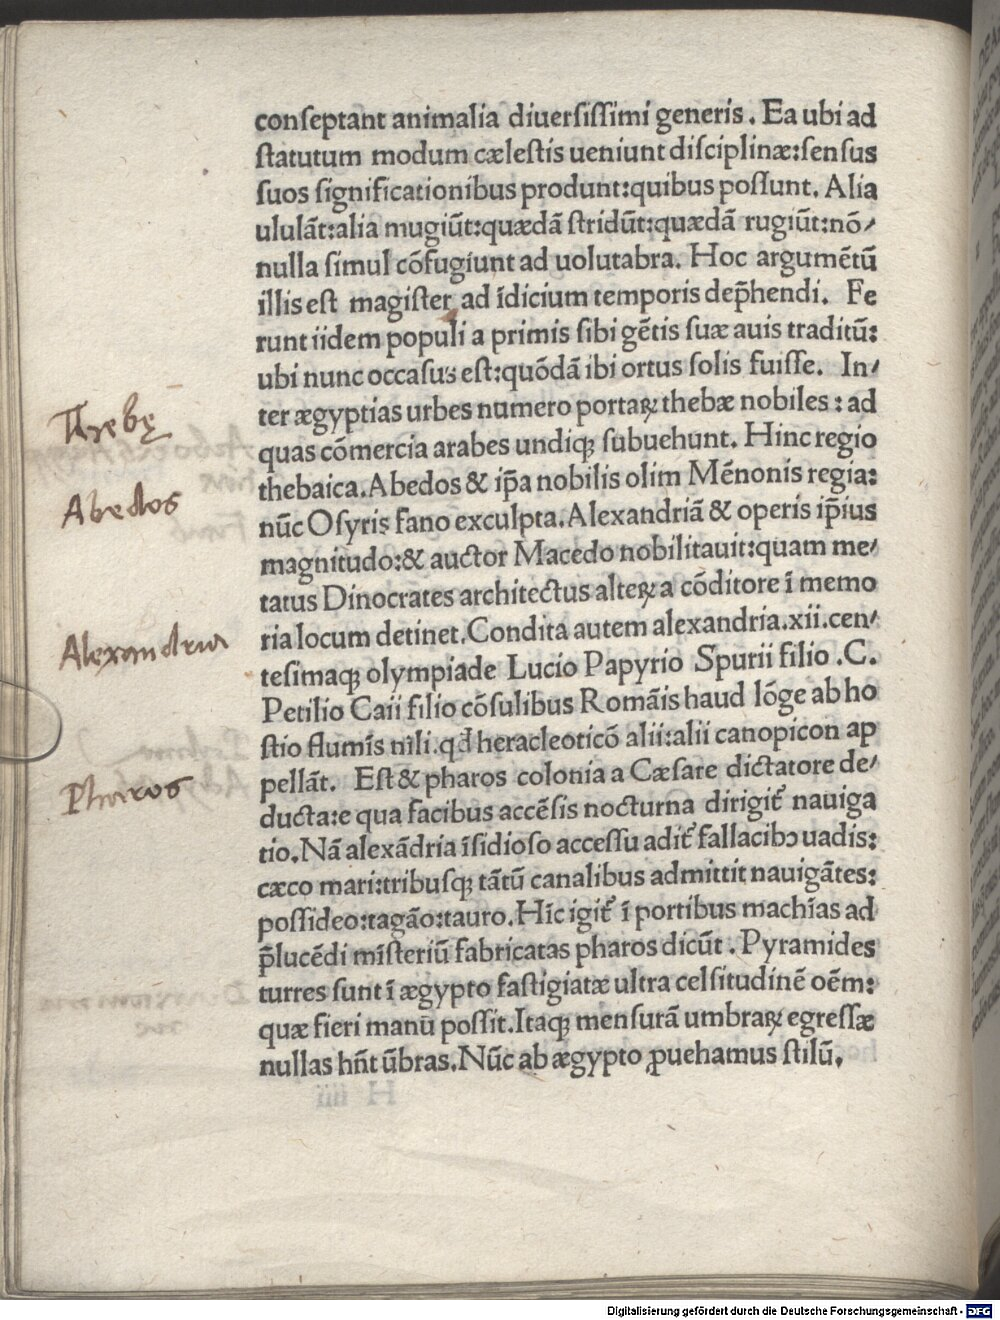 conſeptant animalia diuerſiſſimi generis. Ea ubi ad
ſtatutum modum cæleſtis ueniunt diſciplinæ:ſenſus
ſuos ſignificationibus produnt:quibus poſſunt. Alia
ululāt:alia mugiūt:quædā ſtridūt:quædā rugiūt:nō/
nulla ſimul cōfugiunt ad uolutabra. Hoc argumētū
illis eſt magiſter ad īdicium temporis dep̄hendi. Fe
runt iidem populi a primis ſibi gētis ſuæ auis traditū:
ubi nunc occaſus eſt:quōdā ibi ortus ſolis fuiſſe. In/
Thebę
ter ægyptias urbes numero portaꝝ thebæ nobiles: ad
quas cōmercia arabes undiqꝫ ſubuehunt. Hinc regio
Abedos
thebaica.Abedos & ip̄a nobilis olim Mēnonis regia:
nūc Oſyris fano exculpta.Alexandriā & operis ip̄ius
magnitudo:& auctor Macedo nobilitauit:quam me/
tatus Dinocrates architectus alteꝝ a cōditore ī memo
Alexandria
ria locum detinet.Condita autem alexandria.xii.cen/
teſimaqꝫ olympiade Lucio Papyrio Spurii filio .C.
Petilio Caii filio cōſulibus Romāis haud lōge ab ho
ſtio flumīs nili.qđ heracleoticō alii:alii canopicon ap
Pharos
pellāt. Eſt & pharos colonia a Cæſare dictatore de/
ducta:e qua facibus accēſis nocturna dirigit᷑ nauiga
tio.Nā alexādria īſidioſo acceſſu adit᷑ fallacibꝰ uadis:
cæco mari:tribuſqꝫ tātū canalibus admittit nauigātes:
poſſideo:tagāo:tauro.Hīc igit᷑ ī portibus machīas ad
p̄lucēdi mīſteriū fabricatas pharos dicūt. Pyramides
turres ſunt ī ægypto faſtigiatæ ultra celſitudinē oēm:
quæ fieri manu poſſit.Itaqꝫ menſurā umbraꝝ egreſſæ
nullas hn̄t ūbras.Nūc ab ægypto ꝓuehamus ſtilū.
Digitalisierung gefördert durch die Deutsche Forschungsgemeinschaft - DFG